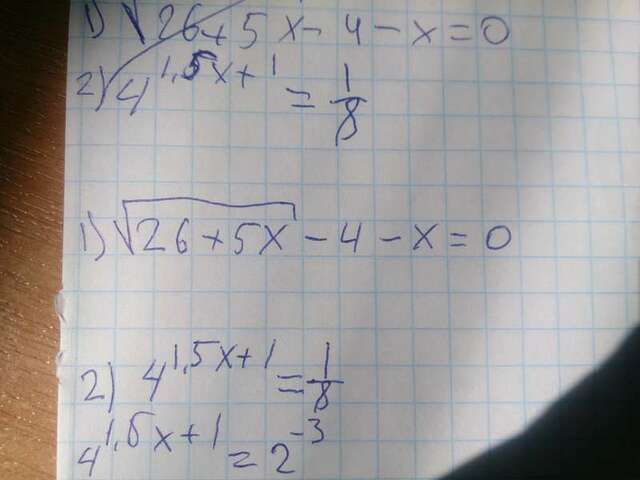 1) √26+5x-4-x=0
2) 4^1,5x+1 = 1/8
1) √26+5x -4-x=0
2) 4^1,5x+1 = 1/8
4^1,5x+1 = 2^-3